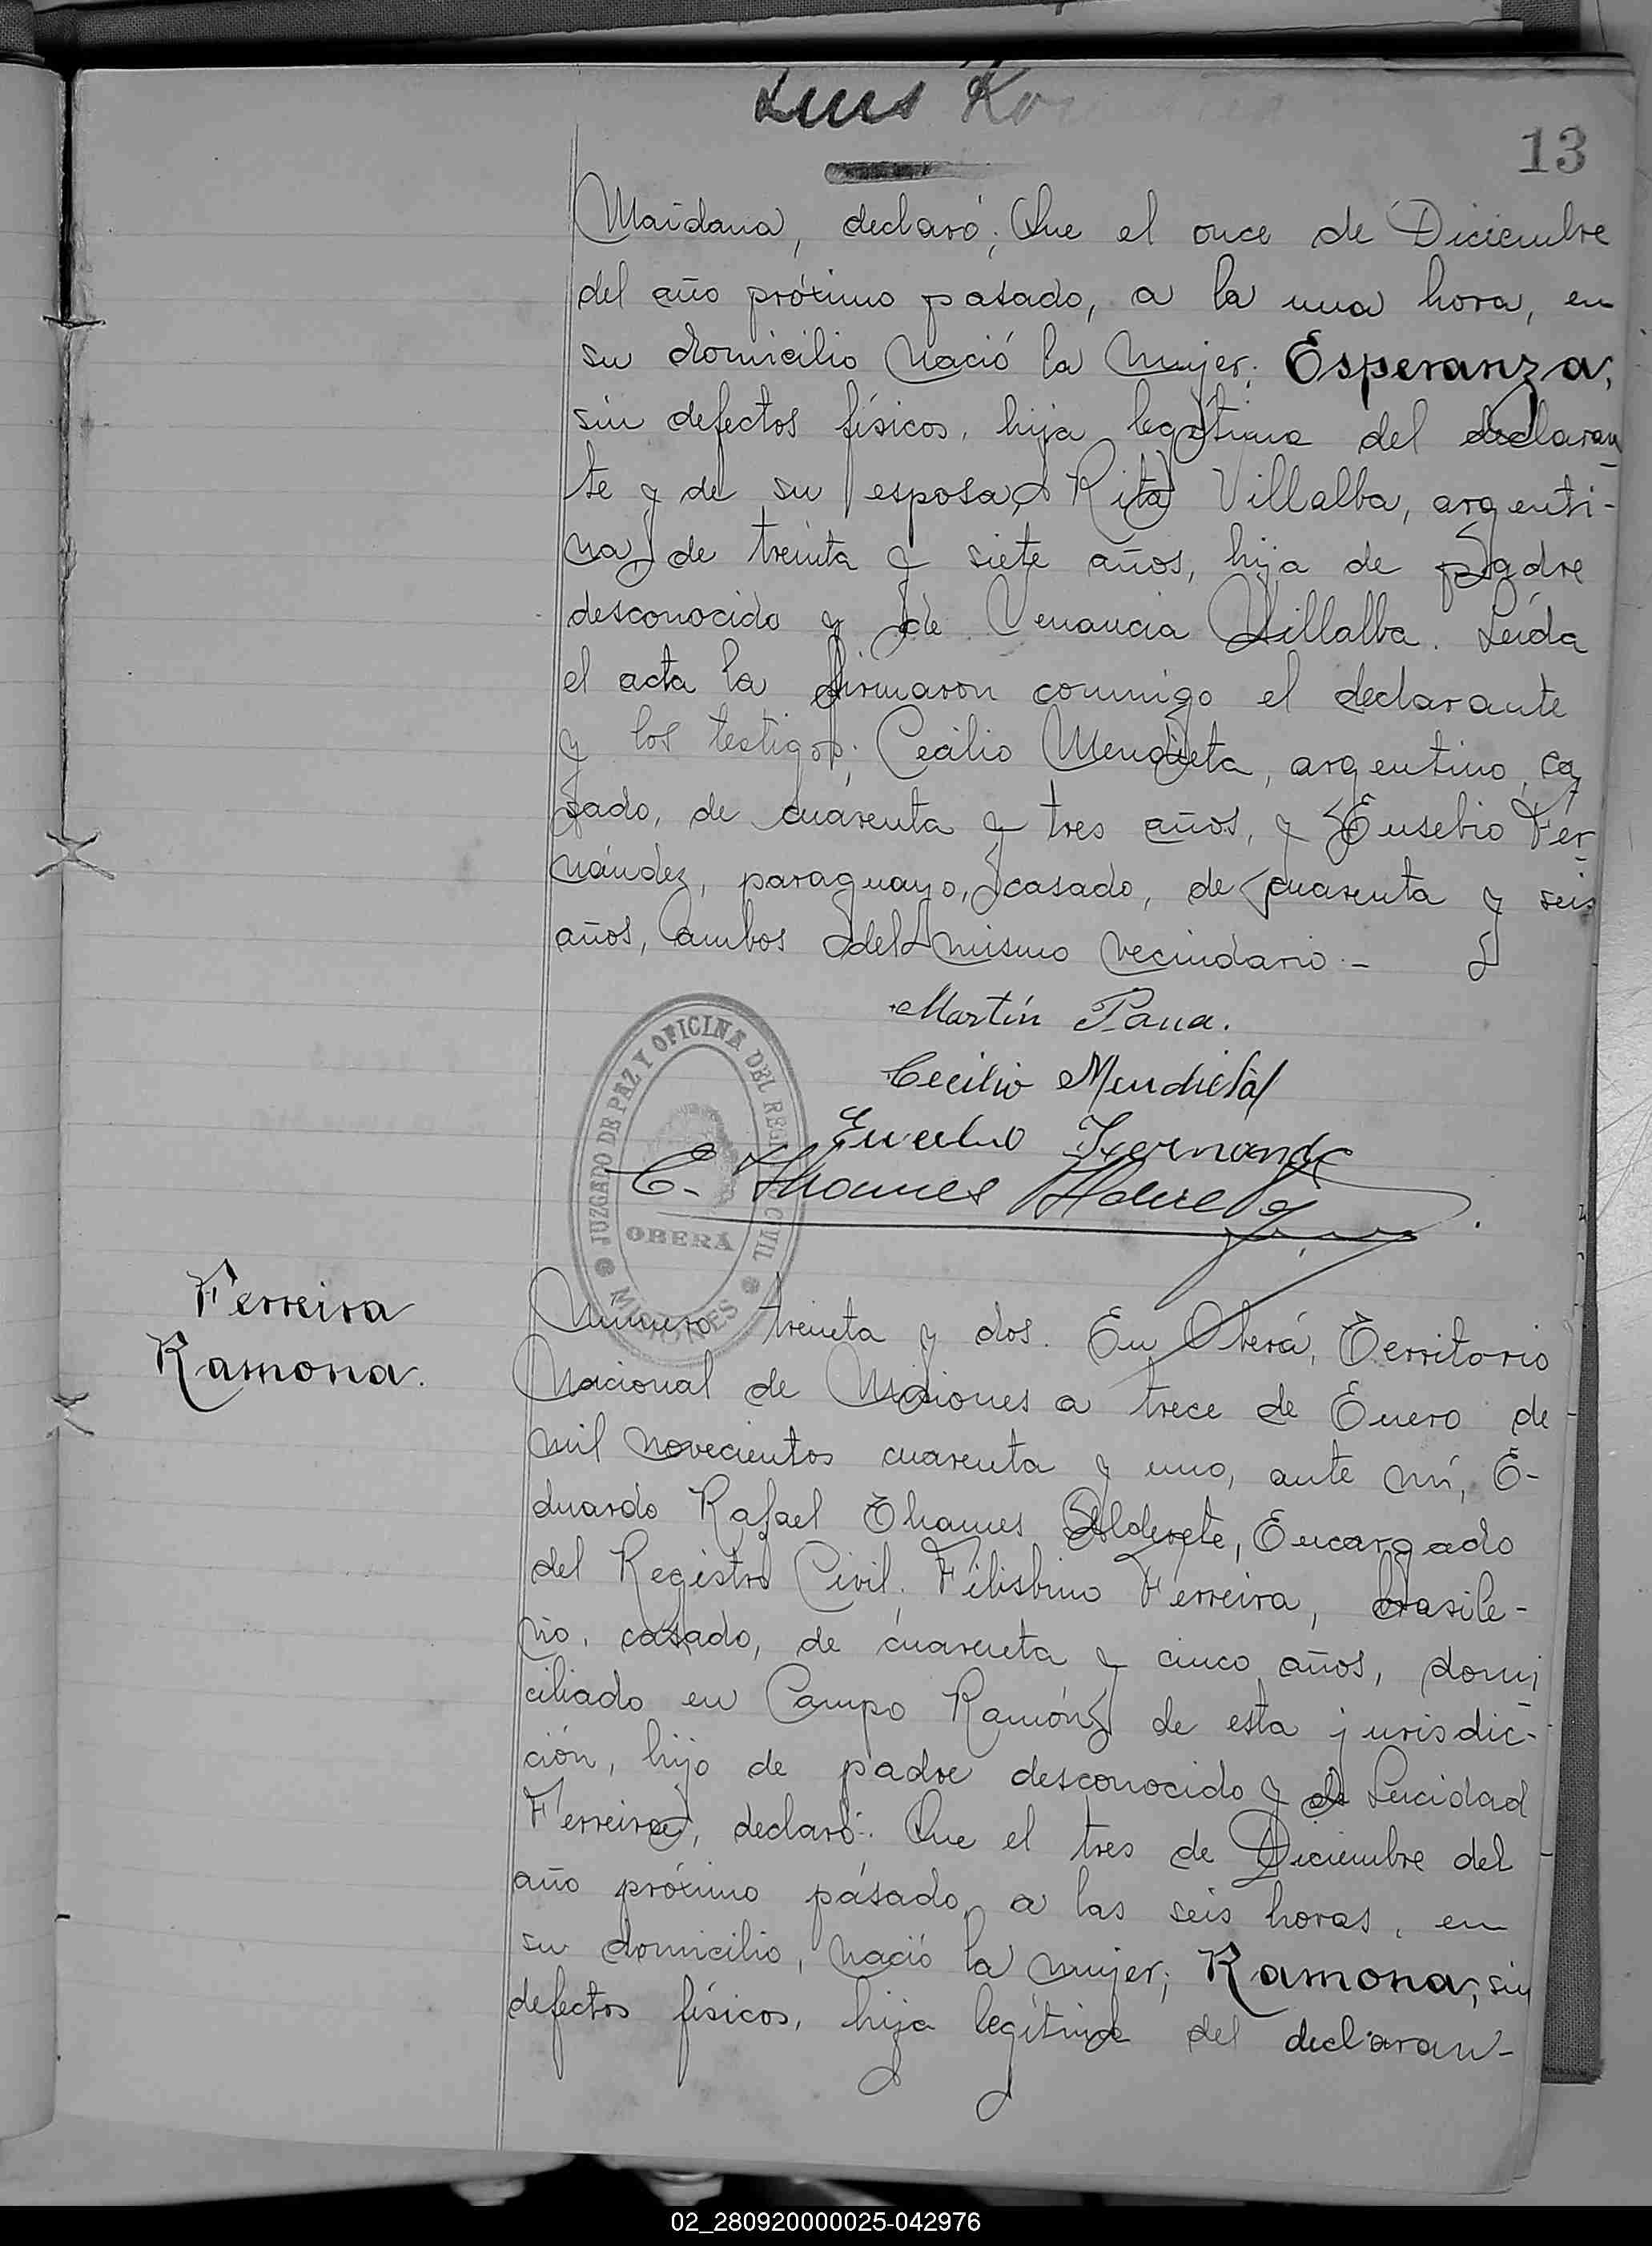 Luis
13
Maidana, declaró; Que el once de Diciembre
del año próximo pasado, a la una hora, en
su domicilio nació la mujer; Esperanza,
sin defectos físicos, hija legítima del declaran
te y de su esposa, Rita Villalba, argenti-
na, de treinta y siete años, hija de padre
desconocido y de Venancia Villalba. Leída
el acta la firmaron conmigo el declarante
y los testigos; Cecilio Mendieta, argentino, ca
sado, de cuarenta y tres años, y Eusebio Fer
nández, paraguayo, casado, de cuarenta y seis
años, ambos del mismo vecindario.-
Martín Paua.
Cecilio Mendieta
Eusebio Fernande
E. Thames Alderete
JUZGADO DE PAZ Y OFICINA DEL REGISTRO CIVIL
OBERÁ
MISIONES
Ferreira
Ramona.
Número treinta y dos. En Oberá, Territorio
Nacional de Misiones a trece de Enero de
mil novecientos cuarenta y uno, ante mí, E-
duardo Rafael Thames Alderete, Encargado
del Registro Civil. Filisbino Ferreira, brasile-
ño, casado, de cuarenta y cinco años, domi
ciliado en Campo Ramón, de esta jurisdic-
ción, hijo de padre desconocido y de Lucidad
Ferreira, declaró: Que el tres de Diciembre del
año próximo pasado, a las seis horas, en
su domicilio, nació la mujer; Ramona, sin
defectos físicos, hija legítima del declaran-
02_280920000025-042976